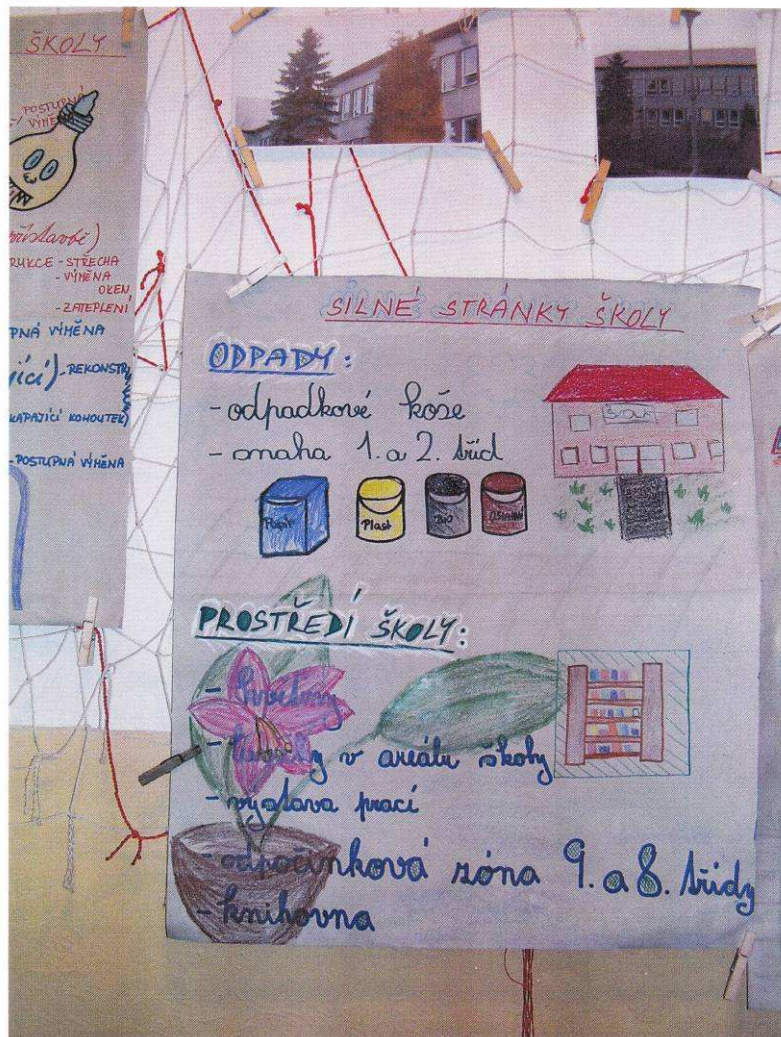 ŠKOLY
POSTUPNÁ
VÝMĚNA
RUKCE - STŘECHA
- VÝMĚNA
OKEN
- ZATEPLENÍ
PNÁ VÝMĚNA
jící) - REKONSTR
KAPAJÍCÍ KOHOUTEK)
- POSTUPNÁ VÝMĚNA
SILNÉ STRÁNKY ŠKOLY
ODPADY:
- odpadkové koše
- snaha 1. a 2. tříd
Papír
Plast
Bio
PROSTŘEDÍ ŠKOLY:
- květiny
- v areálu školy
- výstava prací
- odpočinková zóna 9. a 8. třídy
- knihovna